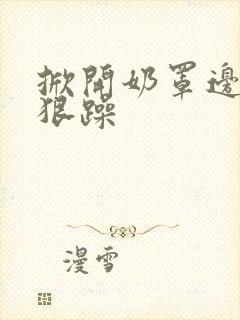 掀開奶罩邊
狠躁
漫雪